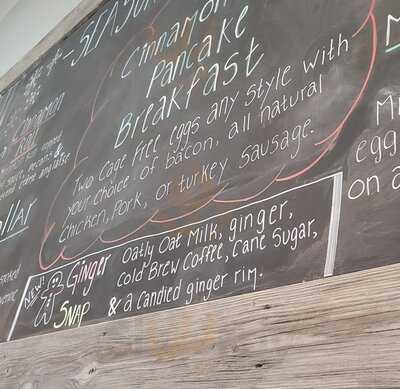 SEASON
Cinnamon
Roll
Cinnamon
Pancake
Breakfast
Two cage free eggs any style with
your choice of bacon, all natural
chicken, pork, or turkey sausage.
egg
on a
NEW!
Ginger
Snap
Oatly Oat Milk, ginger,
cold Brew Coffee, cane Sugar,
& a candied ginger rim.